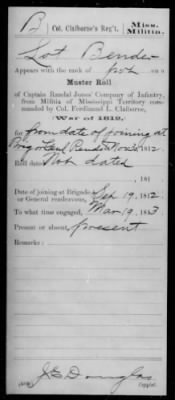 B
Col. Claiborne's Reg't.
Miss. Militia.
Lot Bender
Appears with the rank of pvt on a
Muster Roll
of Captain Randal Jones' Company of Infantry,
from Militia of Mississippi Territory com-
manded by Col. Ferdinand L. Claiborne,
(War of 1812,)
for from date of joining at
Brig Genl Rendz Nov 30 1812.
Roll dated Not dated
, 181
Date of joining at Brigade
or General rendezvous, Sep 19, 1812
To what time engaged, Mar 19, 1813
Present or absent, present
Remarks:
Copyist.